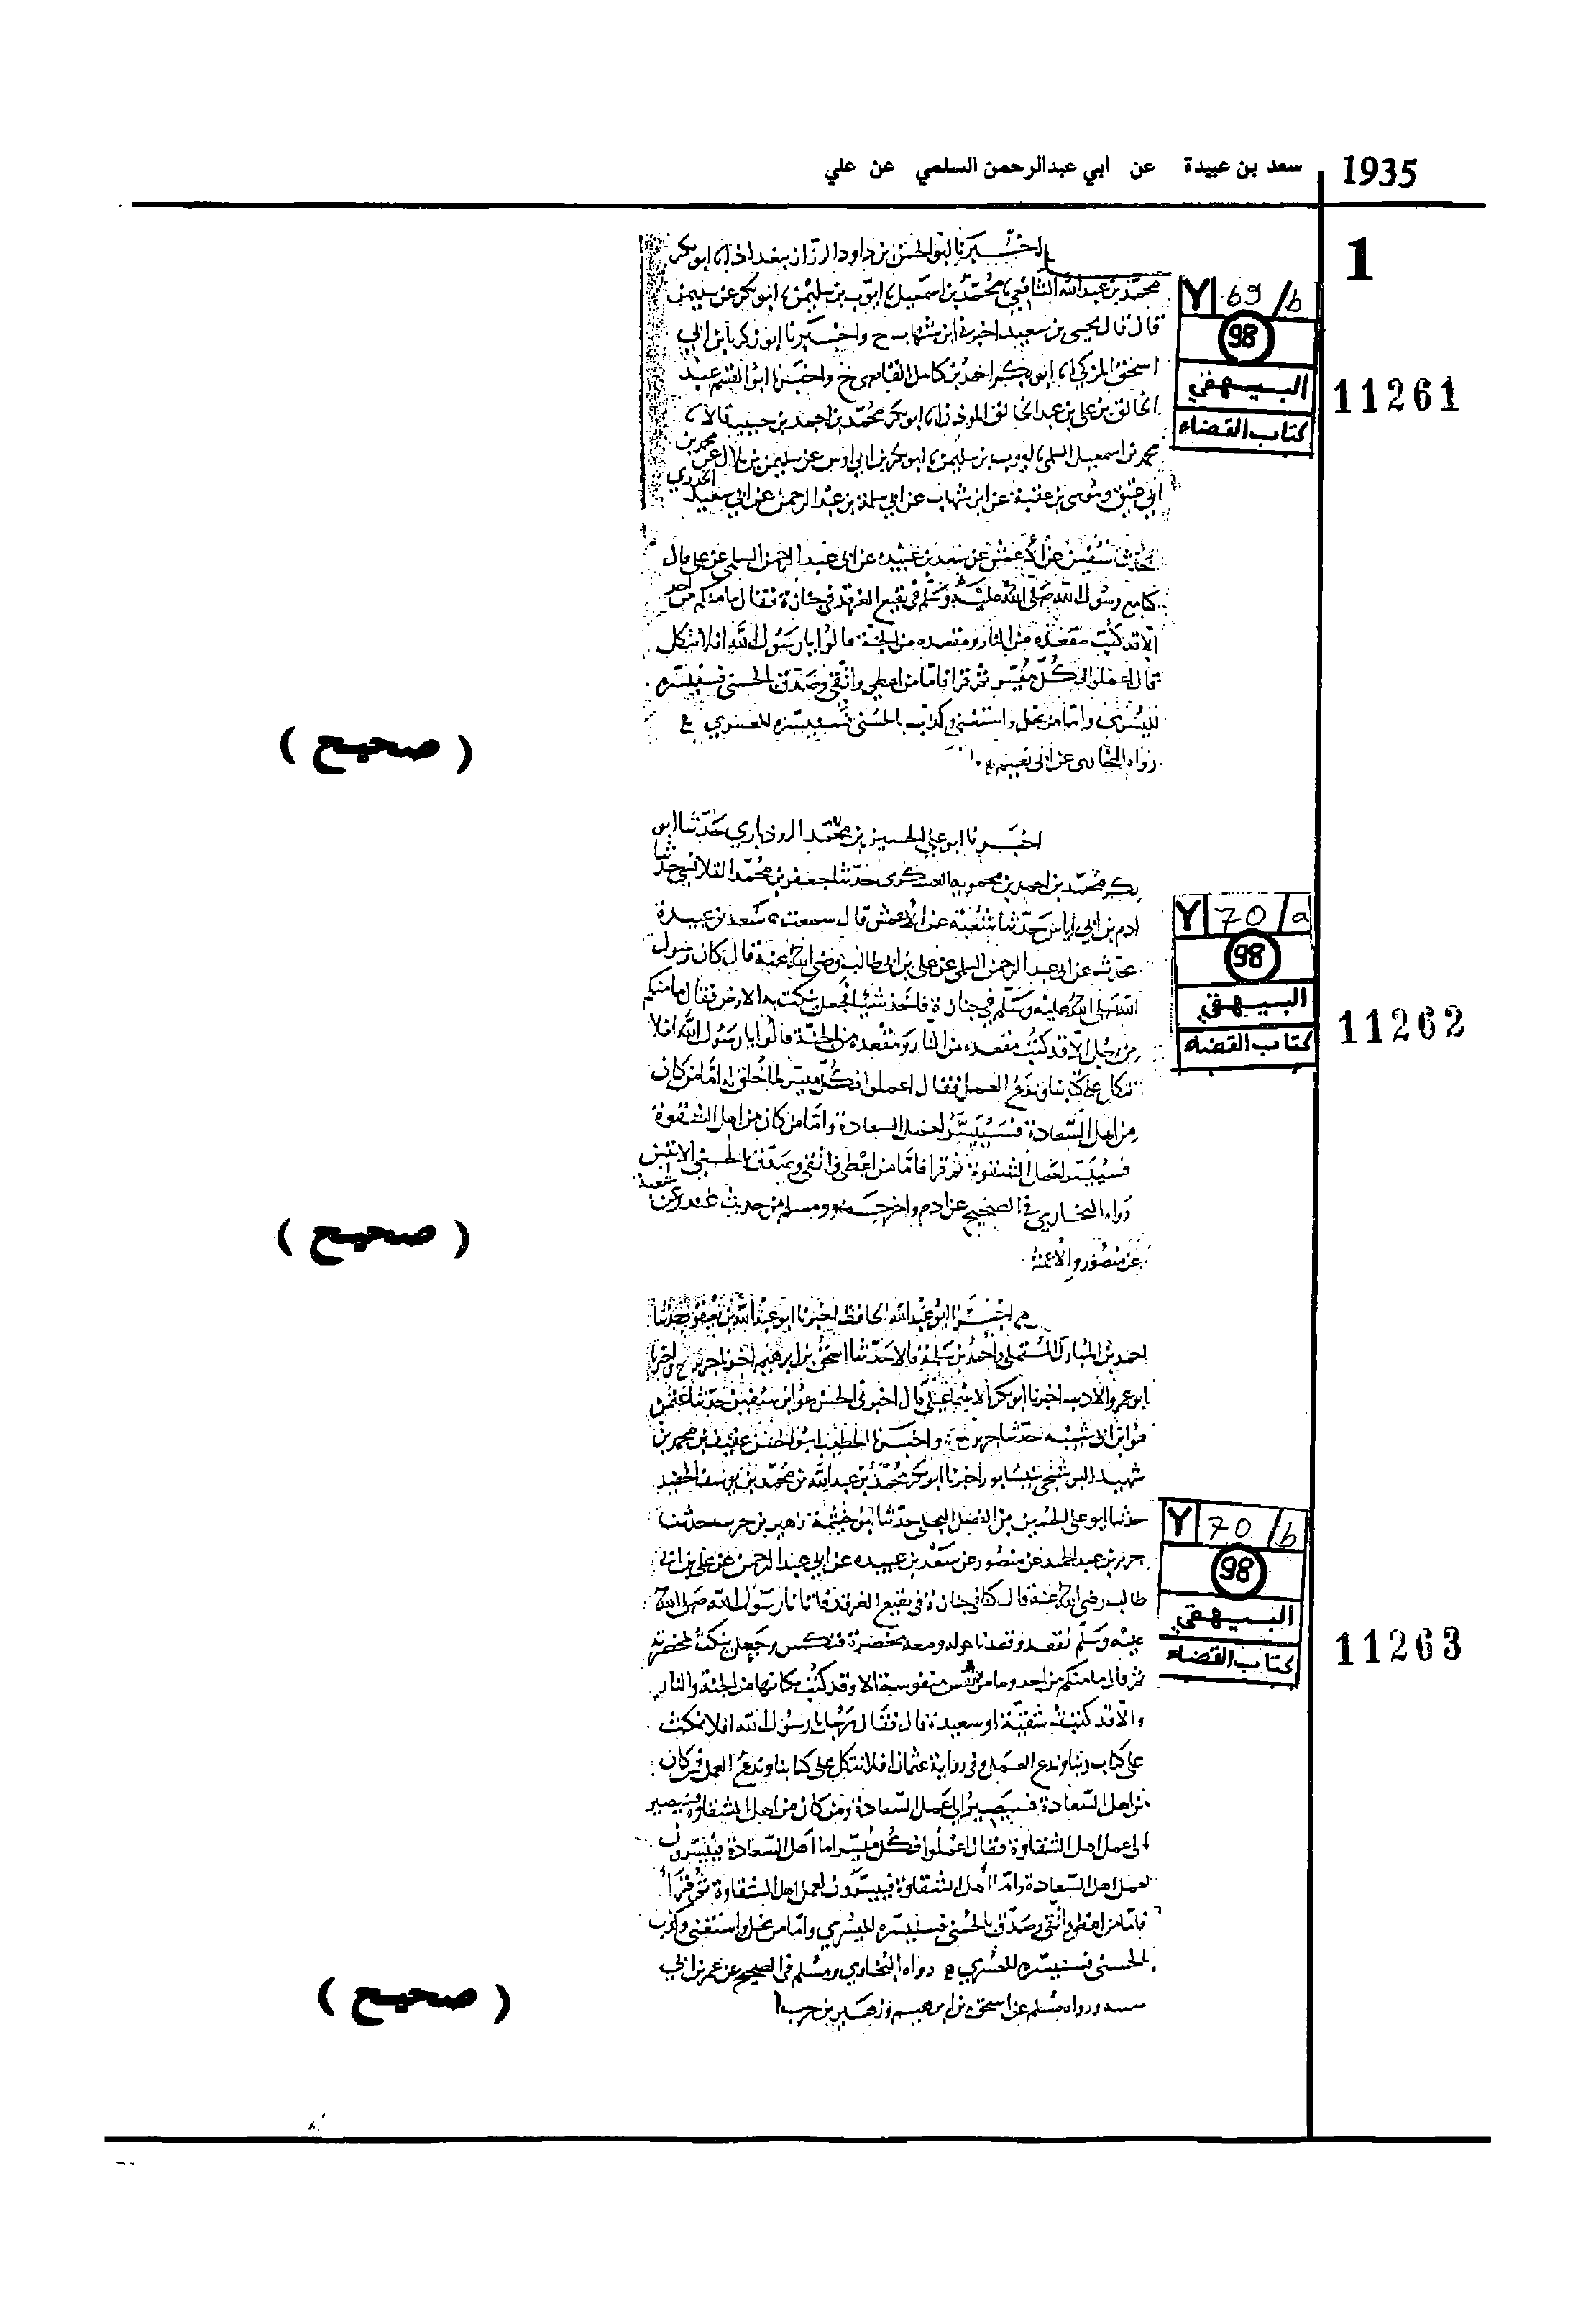 1935
سعد بن عبيدة عن ابي عبدالرحمن السلمي عن علي
1
Y 69/b
98
البيهقي
كتاب القضاء
11261
اخبرنا ابو الحسن بن داود الرزاز ببغداد انا ابو بكر
محمد بن عبد الله الشافعي نا محمد بن اسمعيل نا ايوب بن سليمن نا ابو بكر عن سليمن
قال قال يحيى بن سعيد اخبرني ابن شهاب ح واخبرنا ابو زكريا بن ابي
اسحق المزكي انا ابو بكر احمد بن كامل القاضي ح واخبرنا ابو القسم عبد
الخالق بن علي بن عبد الخالق الموذن انا ابو بكر محمد بن احمد بن خنب قالا نا
محمد بن اسمعيل السلمي نا ايوب بن سليمن نا ابو بكر بن ابي اويس عن سليمن بن بلال عن محمد بن
ابي عتيق وموسى بن عقبة عن ابن شهاب عن ابي سلمة بن عبد الرحمن عن ابي سعيد الخدري
حدثنا سفين عن الاعمش عن سعد بن عبيده عن ابي عبد الرحمن السلمي عن علي قال
كنا مع رسول الله صلى الله عليه وسلم في بقيع الغرقد في جنازة فقال ما منكم من احد
الا قد كتب مقعده من النار ومقعده من الجنة قالوا يا رسول الله افلا نتكل
قال اعملوا فكل ميسر ثم قرا فاما من اعطى واتقى وصدق بالحسنى فسنيسره
لليسرى واما من بخل واستغنى وكذب بالحسنى فسنيسره للعسرى
رواه البخاري عن ابي نعيم
( صحيح )
Y 70/a
98
البيهقي
كتاب القضاء
11262
اخبرنا ابو علي الحسين بن محمد الروذباري حدثنا ابو
بكر محمد بن احمد بن محمويه العسكري حدثنا جعفر بن محمد القلانسي حدثنا
ادم بن ابي اياس حدثنا شعبة عن الاعمش قال سمعت سعد بن عبيدة
يحدث عن ابي عبد الرحمن السلمي عن علي بن ابي طالب رضي الله عنه قال كان رسول
الله صلى الله عليه وسلم في جنازة فاخذ شيئا فجعل ينكت به الارض فقال ما منكم
من رجل الا قد كتب مقعده من النار ومقعده من الجنة قالوا يا رسول الله افلا
نتكل على كتابنا وندع العمل فقال اعملوا فكل ميسر لما خلق له اما من كان
من اهل السعادة فسييسر لعمل السعادة واما من كان من اهل الشقوة
فسييسر لعمل الشقوة ثم قرا فاما من اعطى واتقى وصدق بالحسنى الايتين
رواه البخاري في الصحيح عن ادم واخرجه هو ومسلم من حديث غندر عن شعبة
عن منصور والاعمش
( صحيح )
Y 70/b
98
البيهقي
كتاب القضاء
11263
اخبرنا ابو عبد الله الحافظ اخبرنا ابو عبد الله بن يعقوب حدثنا
احمد بن المبارك المستملي واحمد بن سلمة قالا حدثنا اسحق بن ابرهيم اخبرنا جرير ح واخبرنا
ابو عمرو الاديب اخبرنا ابو بكر الاسماعيلي قال اخبرني الحسن هو ابن سفين حدثنا عثمن
هو ابن ابي شيبه حدثنا جرير ح واخبرنا الخطيب ابو الحسن عفيف بن محمد بن
شهيد البوشنجي بنيسابور اخبرنا ابو بكر محمد بن عبد الله بن محمد بن يوسف الحفيد
حدثنا ابو علي الحسين بن الفضل البجلي حدثنا ابو خيثمة زهير بن حرب حدثنا
جرير بن عبد الحميد عن منصور عن سعد بن عبيده عن ابي عبد الرحمن عن علي بن ابي
طالب رضي الله عنه قال كنا في جنازة في بقيع الغرقد فاتانا رسول الله صلى الله
عليه وسلم فقعد وقعدنا حوله ومعه مخصرة فنكس وجعل ينكت بمخصرته
ثم قال ما منكم من احد وما من نفس منفوسة الا وقد كتب مكانها من الجنة والنار
والا قد كتبت شقية او سعيدة قال فقال رجل يا رسول الله افلا نمكث
على كتاب ربنا وندع العمل وفي رواية عثمان افلا نتكل على كتابنا وندع العمل فمن كان
من اهل السعادة فسيصير الى عمل السعادة ومن كان من اهل الشقاوة فسيصير
الى عمل اهل الشقاوة فقال اعملوا فكل ميسر اما اهل السعادة فييسرون
لعمل اهل السعادة واما اهل الشقاوة فييسرون لعمل اهل الشقاوة ثم قرا
فاما من اعطى واتقى وصدق بالحسنى فسنيسره لليسرى واما من بخل واستغنى وكذب
بالحسنى فسنيسره للعسرى رواه البخاري ومسلم في الصحيح عن عثمن بن ابي
شيبه ورواه مسلم عن اسحق بن ابرهيم وزهير بن حرب
( صحيح )